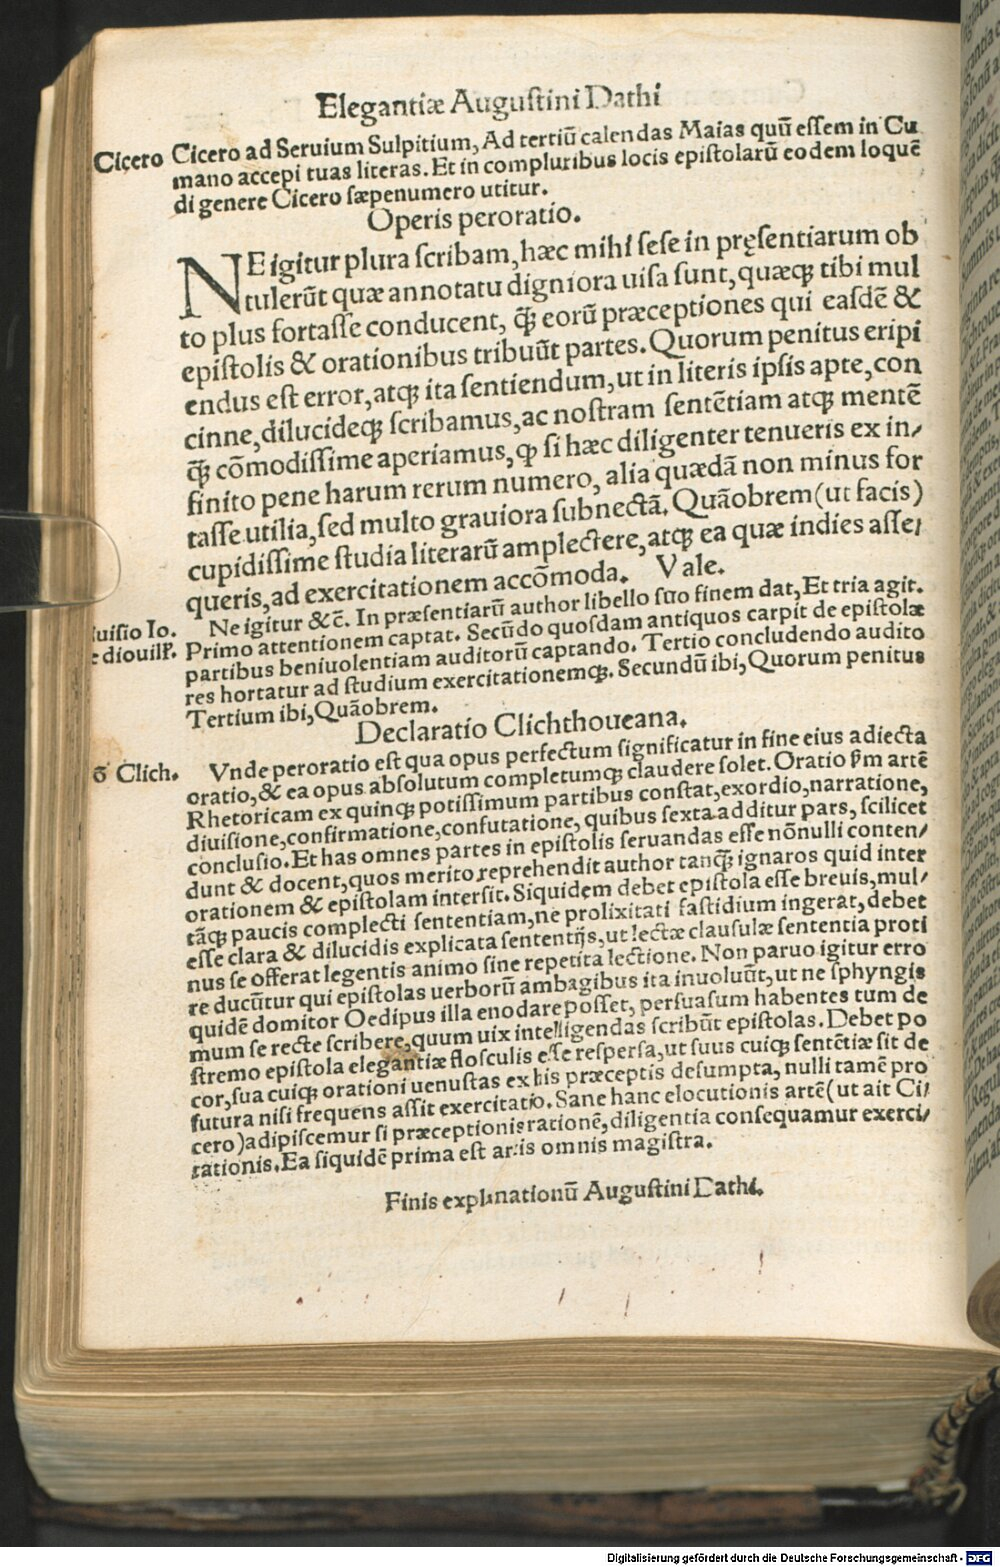 Elegantiæ Auguſtini Dathi
Cicero Cicero ad Seruium Sulpitium, Ad tertiũ calendas Maias quũ eſſem in Cu
mano accepi tuas literas. Et in compluribus locis epiſtolarũ eodem loquẽ
di genere Cicero ſæpenumero utitur.
Operis peroratio.
NE igitur plura ſcribam, hæc mihi ſeſe in pręſentiarum ob
tulerũt quæ annotatu digniora uiſa ſunt, quæqꝫ tibi mul
to plus fortaſſe conducent, q̃ꝫ eorũ præceptiones qui eaſdẽ &
epiſtolis & orationibus tribuũt partes. Quorum penitus eripi
endus eſt error, atqꝫ ita ſentiendum, ut in literis ipſis apte, con
cinne, dilucideqꝫ ſcribamus, ac noſtram ſentẽtiam atqꝫ mentẽ
q̃ꝫ cõmodiſſime aperiamus, ꝙ ſi hæc diligenter tenueris ex in/
finito pene harum rerum numero, alia quædã non minus for
taſſe utilia, ſed multo grauiora ſubnectã. Quãobrem (ut facis)
cupidiſſime ſtudia literarũ amplectere, atqꝫ ea quæ indies aſſe/
queris, ad exercitationem accõmoda. Vale.
uiſio Io. Ne igitur &c̃. In præſentiarũ author libello ſuo finem dat, Et tria agit.
Primo attentionem captat. Secũdo quoſdam antiquos carpit de epiſtolæ
partibus beniuolentiam auditorũ captando. Tertio concludendo audito
res hortatur ad ſtudium exercitationemqꝫ. Secundũ ibi, Quorum penitus
Tertium ibi, Quãobrem.
Declaratio Clichthoueana.
Clich. Vnde peroratio eſt qua opus perfectum ſignificatur in fine eius adiecta
oratio, & ea opus abſolutum completumqꝫ claudere ſolet. Oratio p̃m artẽ
Rhetoricam ex quinqꝫ potiſſimum partibus conſtat, exordio, narratione,
diuiſione, confirmatione, confutatione, quibus ſexta additur pars, ſcilicet
concluſio. Et has omnes partes in epiſtolis ſeruandas eſſe nõnulli conten/
dunt & docent, quos merito reprehendit author tanq̃ꝫ ignaros quid inter
orationem & epiſtolam interſit. Siquidem debet epiſtola eſſe breuis, mul/
tãqꝫ paucis complecti ſententiam, ne prolixitati faſtidium ingerat, debet
eſſe clara & dilucidis explicata ſententijs, ut lectæ clauſulæ ſententia proti
nus ſe offerat legentis animo ſine repetita lectione. Non paruo igitur erro
re ducũtur qui epiſtolas uerborũ ambagibus ita inuoluũt, ut ne ſphyngis
quidẽ domitor Oedipus illa enodare poſſet, perſuaſum habentes tum de
mum ſe recte ſcribere, quum uix intelligendas ſcribũt epiſtolas. Debet po
ſtremo epiſtola elegantiæ floſculis eſſe reſperſa, ut ſuus cuiqꝫ ſentẽtiæ ſit de
cor, ſua cuiqꝫ orationi uenuſtas ex his præceptis deſumpta, nulli tamẽ pro
futura niſi frequens aſſit exercitatio. Sane hanc elocutionis artẽ (ut ait Ci/
cero) adipiſcemur ſi præceptionis rationẽ, diligentia conſequamur exerci/
tationis. Ea ſiquidẽ prima eſt artis omnis magiſtra.
Finis explanationũ Auguſtini Dathi.
Digitalisierung gefördert durch die Deutsche Forschungsgemeinschaft - DFG